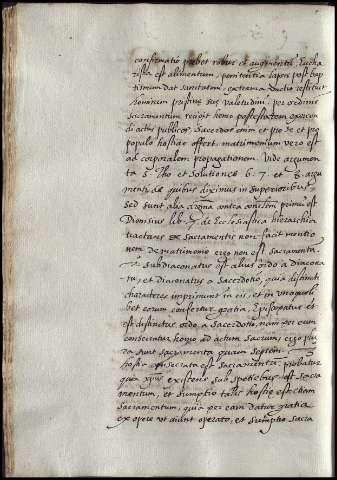 confirmatio præbet robur et augmentū. Eucha
ristia est alimentum, penitentia lapsis post bap
tismum dat sanitatem, extrema unctio restituit
hominem pristinæ suæ valetudini, per ordinē
sacramentum recipit homo potestatem exercen
di actus publicos. Sacerdos enim et pro se et pro
populo hostiā offert. matrimonium vero est
ad corporalem propagationem. Vide argumen
ta S. Tho et solutiones 6. 7. et 8. argu
menti de quibus diximus in superioribus
Sed sunt alia argumenta primū est
Dionisius lib. de Ecclesiastica hierarchia
tractans de sacramentis non facit mentio
nem de matrimonio ergo non est sacramentū.
subdiaconatus est alius ordo a diacona
tu, et diaconatus a sacerdotio, quia distincti
characteres imprimunt in eis, et in unoquoli
bet eorum confertur gratia, Episcopatus ēt
est distinctus ordo a sacerdotio, nam per eum
consecratur homo ad actum sacrum, ergo plu
ra sunt sacramenta quam septem.
hostia consecrata est sacramentū probatur
quia xpūs existens sub speciebus est sacra
mentum, et sumptio talis hostiæ est etiam
sacramentum, quia per eam datur gratia
ex opere ut aiunt operato, et sumptio sacra